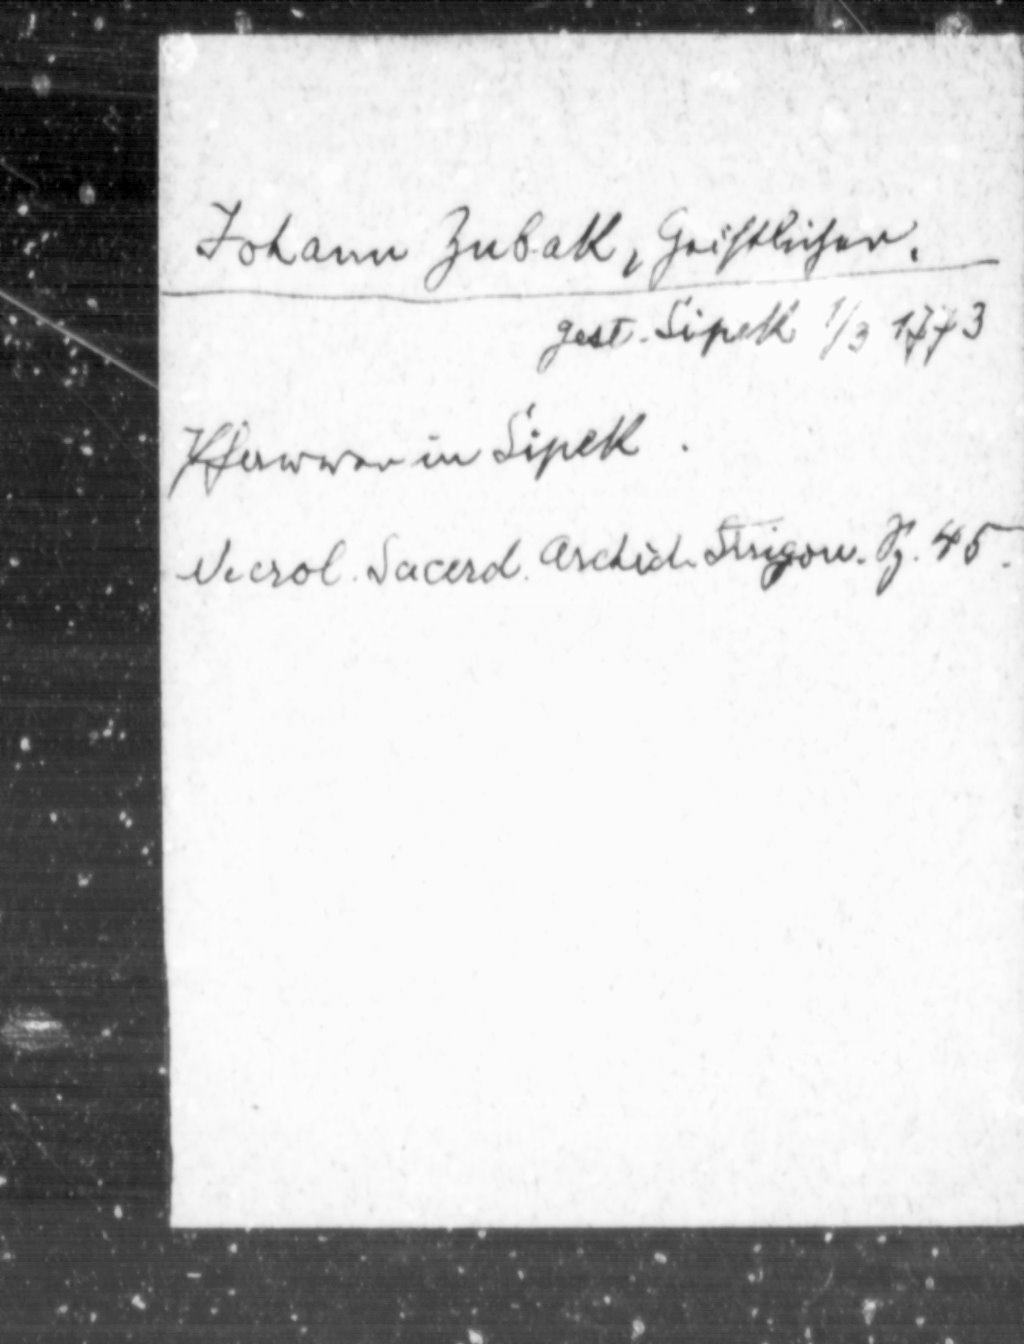 Johann Zubak, Geistlicher.
gest. Sipek 1/3 1773
Pfarrer in Sipek.
Necrol. Sacerd. Archid. Strigon. S. 45.